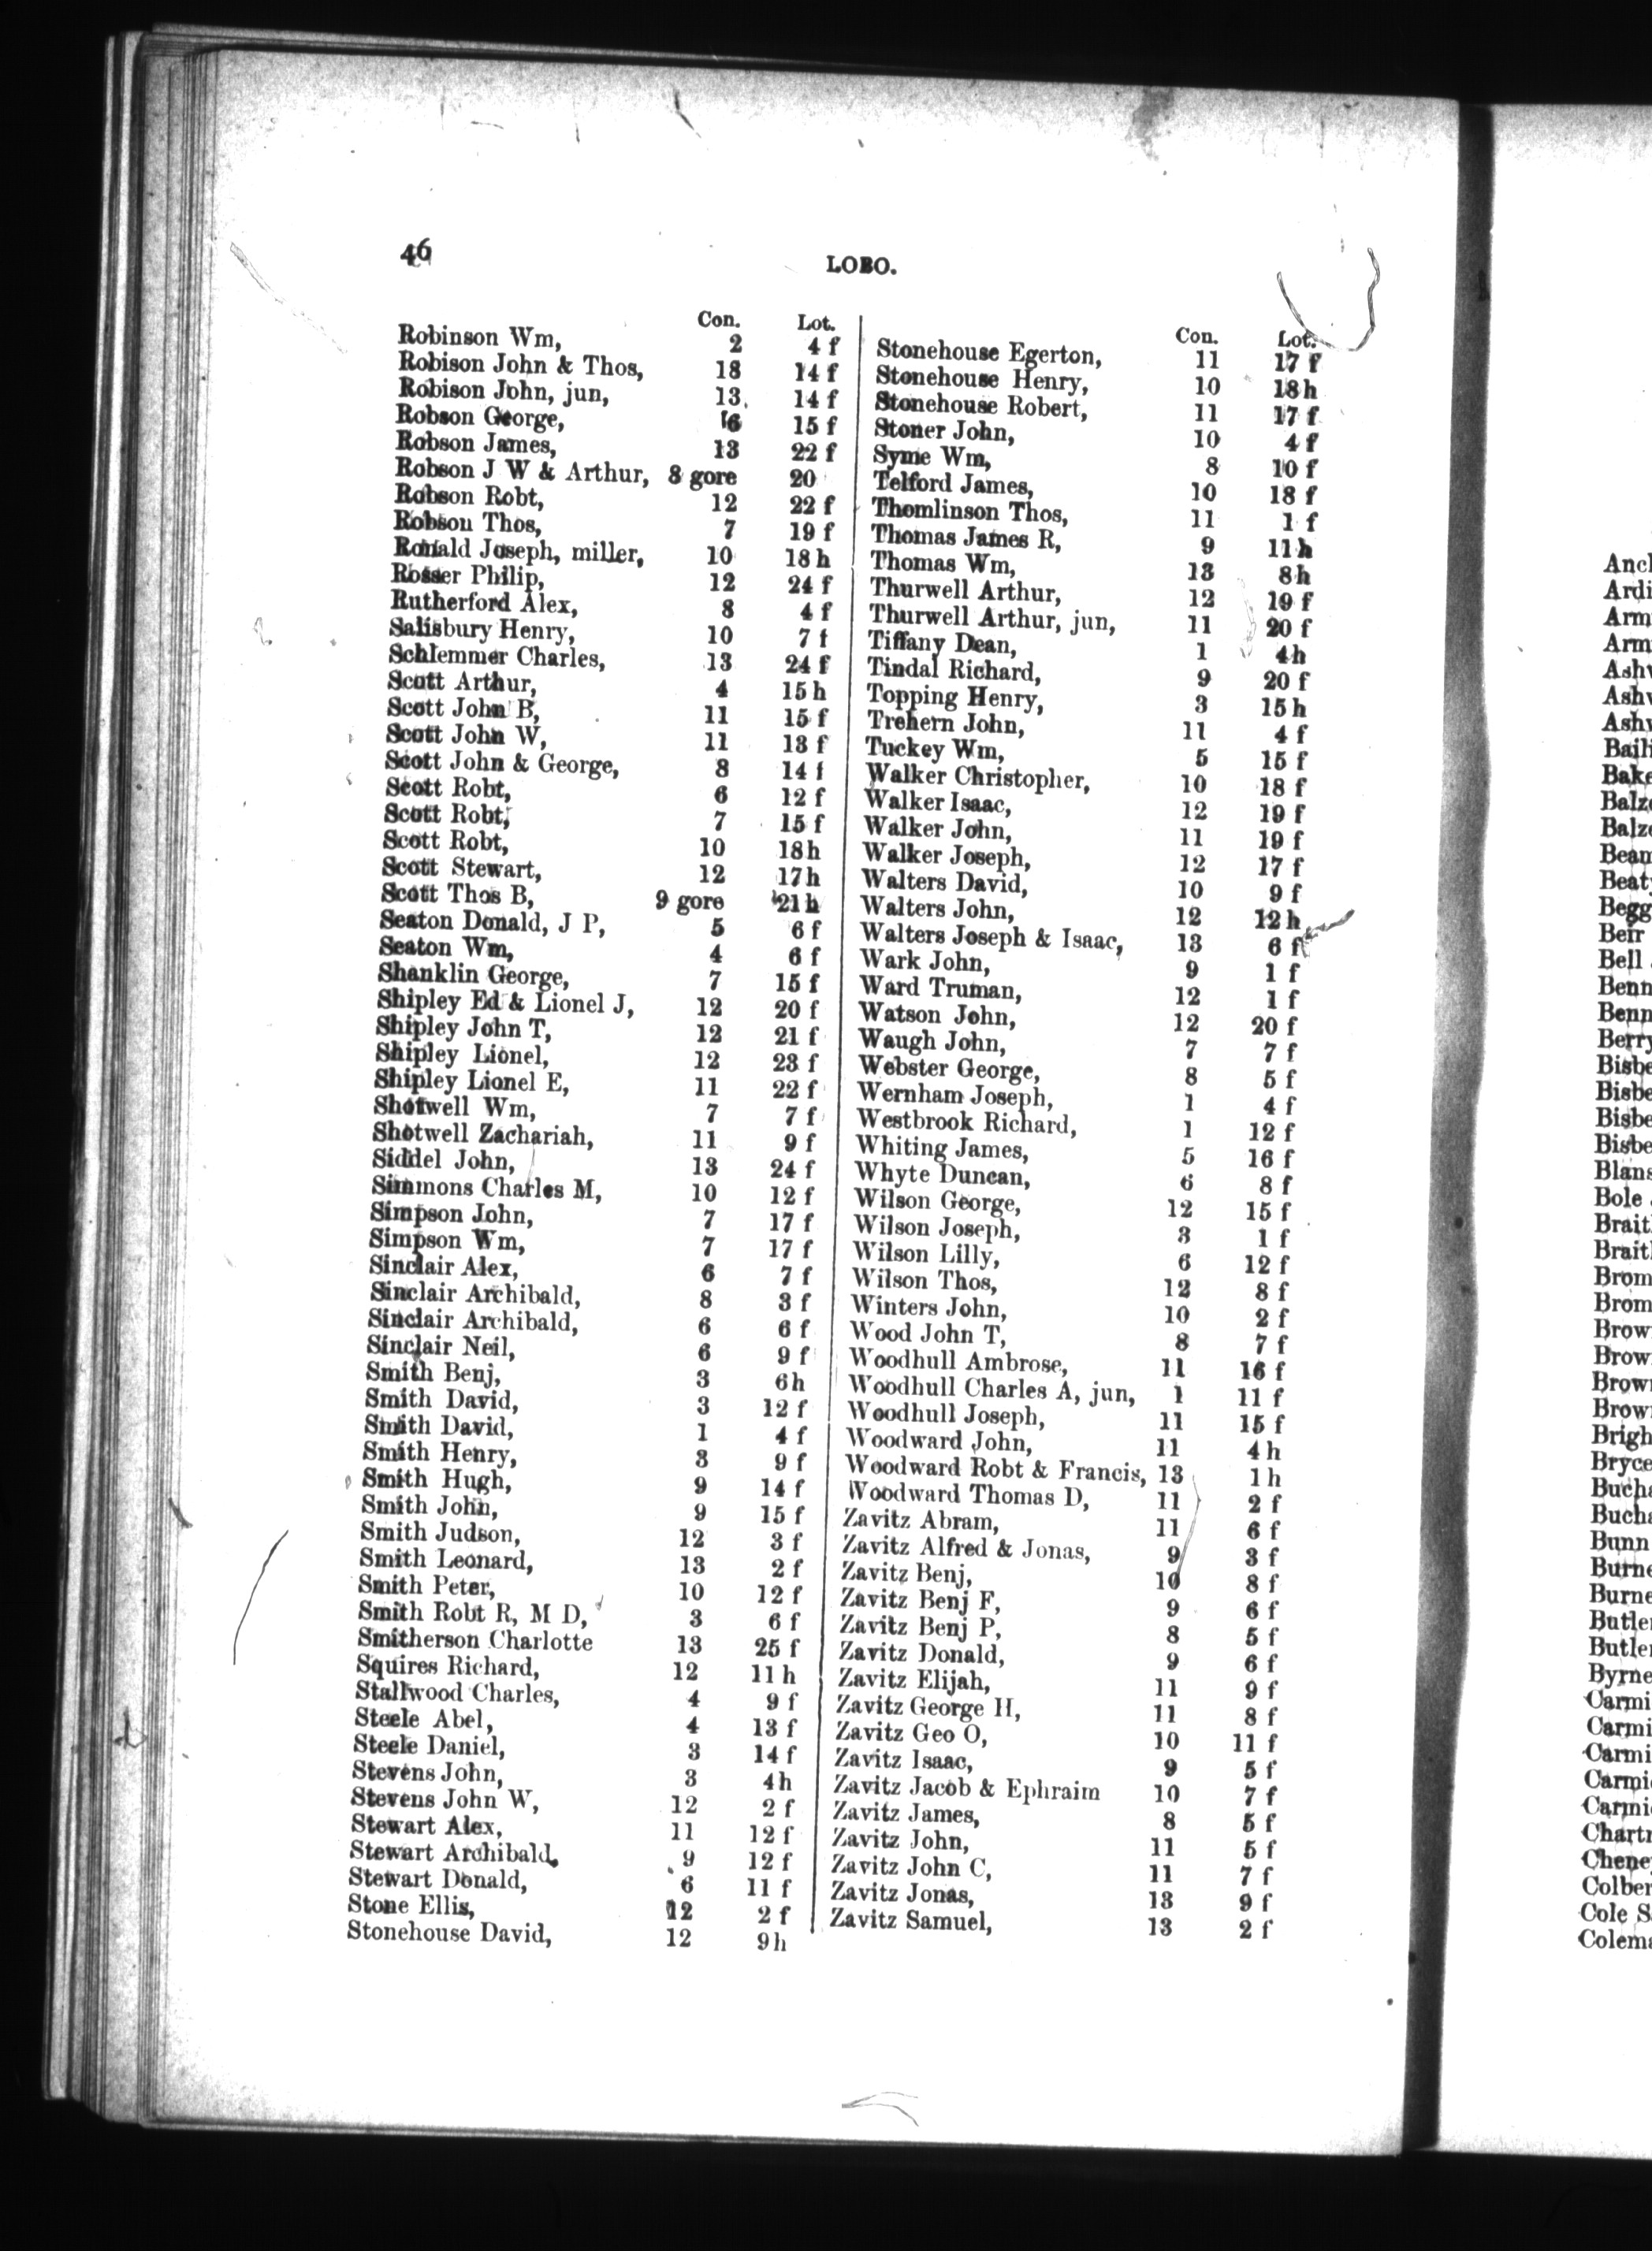 46
LOBO.
Con. Lot.
Robinson Wm, 2 4 f
Robison John & Thos, 18 14 f
Robison John, jun, 13 14 f
Robson George, 6 15 f
Robson James, 13 22 f
Robson J W & Arthur, 8 gore 20
Robson Robt, 12 22 f
Robson Thos, 7 19 f
Ronald Joseph, miller, 10 18 h
Rosser Philip, 12 24 f
Rutherford Alex, 8 4 f
Salisbury Henry, 10 7 f
Schlemmer Charles, 13 24 f
Scott Arthur, 4 15 h
Scott John B, 11 15 f
Scott John W, 11 13 f
Scott John & George, 8 14 f
Scott Robt, 6 12 f
Scott Robt, 7 15 f
Scott Robt, 10 18 h
Scott Stewart, 12 17 h
Scott Thos B, 9 gore 21 h
Seaton Donald, J P, 5 6 f
Seaton Wm, 4 6 f
Shanklin George, 7 15 f
Shipley Ed & Lionel J, 12 20 f
Shipley John T, 12 21 f
Shipley Lionel, 12 23 f
Shipley Lionel E, 11 22 f
Shotwell Wm, 7 7 f
Shotwell Zachariah, 11 9 f
Siddel John, 13 24 f
Simmons Charles M, 10 12 f
Simpson John, 7 17 f
Simpson Wm, 7 17 f
Sinclair Alex, 6 7 f
Sinclair Archibald, 8 3 f
Sinclair Archibald, 6 6 f
Sinclair Neil, 6 9 f
Smith Benj, 3 6 h
Smith David, 3 12 f
Smith David, 1 4 f
Smith Henry, 3 9 f
Smith Hugh, 9 14 f
Smith John, 9 15 f
Smith Judson, 12 3 f
Smith Leonard, 13 2 f
Smith Peter, 10 12 f
Smith Robt R, M D, 3 6 f
Smitherson Charlotte 13 25 f
Squires Richard, 12 11 h
Stallwood Charles, 4 9 f
Steele Abel, 4 13 f
Steele Daniel, 3 14 f
Stevens John, 3 4 h
Stevens John W, 12 2 f
Stewart Alex, 11 12 f
Stewart Archibald, 9 12 f
Stewart Donald, 6 11 f
Stone Ellis, 12 2 f
Stonehouse David, 12 9 h
Con. Lot.
Stonehouse Egerton, 11 17 f
Stonehouse Henry, 10 18 h
Stonehouse Robert, 11 17 f
Stoner John, 10 4 f
Syme Wm, 8 10 f
Telford James, 10 18 f
Thomlinson Thos, 11 1 f
Thomas James R, 9 11 h
Thomas Wm, 13 8 h
Thurwell Arthur, 12 19 f
Thurwell Arthur, jun, 11 20 f
Tiffany Dean, 1 4 h
Tindal Richard, 9 20 f
Topping Henry, 3 15 h
Trehern John, 11 4 f
Tuckey Wm, 5 15 f
Walker Christopher, 10 18 f
Walker Isaac, 12 19 f
Walker John, 11 19 f
Walker Joseph, 12 17 f
Walters David, 10 9 f
Walters John, 12 12 h
Walters Joseph & Isaac, 13 6 f
Wark John, 9 1 f
Ward Truman, 12 1 f
Watson John, 12 20 f
Waugh John, 7 7 f
Webster George, 8 5 f
Wernham Joseph, 1 4 f
Westbrook Richard, 1 12 f
Whiting James, 5 16 f
Whyte Duncan, 6 8 f
Wilson George, 12 15 f
Wilson Joseph, 3 1 f
Wilson Lilly, 6 12 f
Wilson Thos, 12 8 f
Winters John, 10 2 f
Wood John T, 8 7 f
Woodhull Ambrose, 11 16 f
Woodhull Charles A, jun, 1 11 f
Woodhull Joseph, 11 15 f
Woodward John, 11 4 h
Woodward Robt & Francis, 13 1 h
Woodward Thomas D, 11 2 f
Zavitz Abram, 11 6 f
Zavitz Alfred & Jonas, 9 3 f
Zavitz Benj, 10 8 f
Zavitz Benj F, 9 6 f
Zavitz Benj P, 8 5 f
Zavitz Donald, 9 6 f
Zavitz Elijah, 11 9 f
Zavitz George H, 11 8 f
Zavitz Geo O, 10 11 f
Zavitz Isaac, 9 5 f
Zavitz Jacob & Ephraim 10 7 f
Zavitz James, 8 5 f
Zavitz John, 11 5 f
Zavitz John C, 11 7 f
Zavitz Jonas, 13 9 f
Zavitz Samuel, 13 2 f
Ancl
Ardi
Arm
Arm
Ashv
Ashv
Ashv
Baili
Bake
Balz
Balz
Beam
Beat
Begg
Beir
Bell
Benn
Benn
Berry
Bisbe
Bisbe
Bisbe
Bisbe
Blans
Bole
Brait
Brait
Brom
Brom
Brow
Brow
Brow
Brow
Brigh
Bryce
Bucha
Bucha
Bunn
Burne
Burne
Butle
Butle
Byrne
Carmi
Carmi
Carmi
Carmi
Carmi
Chart
Chene
Colber
Cole S
Colema